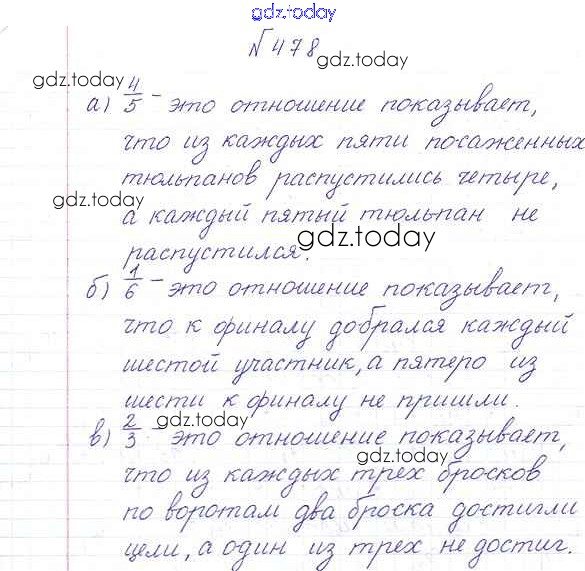 gdz.today
№478
gdz.today
gdz.today
а) 4/5 - это отношение показывает,
что из каждых пяти посаженных
тюльпанов распустились четыре,
gdz.today
а каждый пятый тюльпан не
gdz.today
распустился.
б) 1/6 - это отношение показывает,
что к финалу добрался каждый
шестой участник, а пятеро из
шести к финалу не пришли.
gdz.today
в) 2/3 - это отношение показывает,
gdz.today
что из каждых трех бросков
по воротам два броска достигли
цели, а один из трех не достиг.